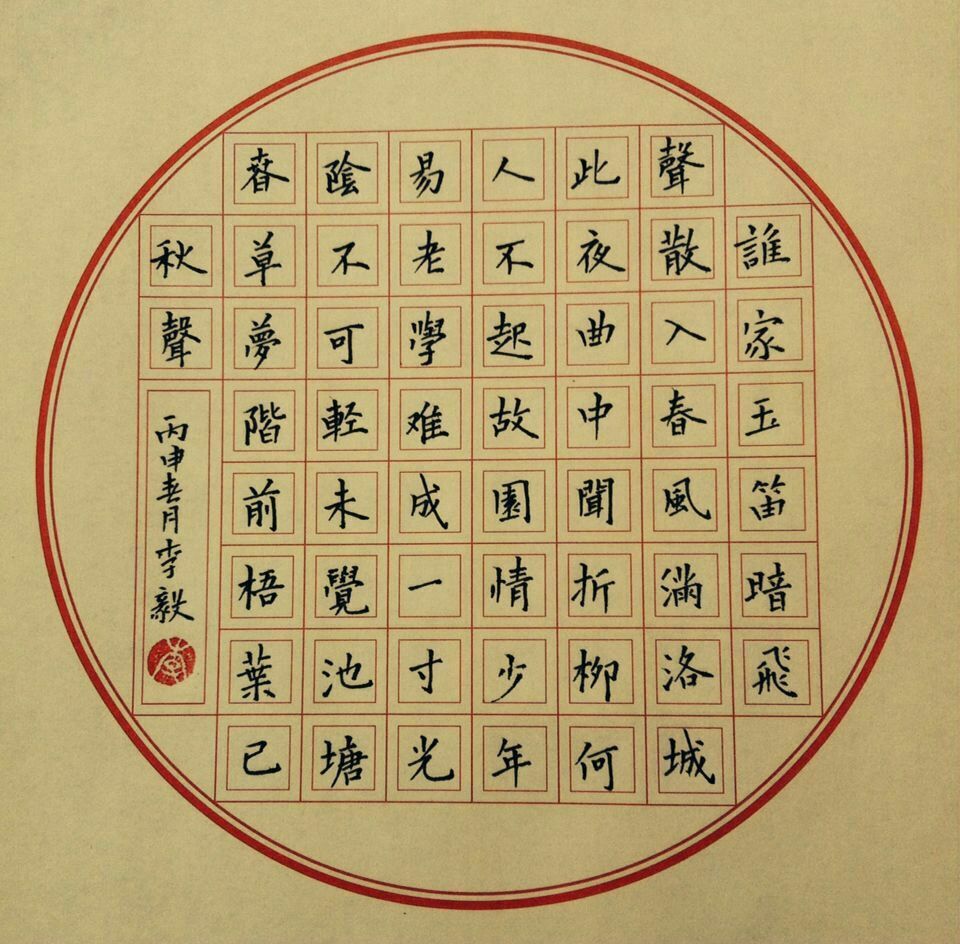 誰家玉笛暗飛
聲散入春風滿洛城
此夜曲中聞折柳何
人不起故園情少年
易老學难成一寸光
陰不可軽未覺池塘
春草夢階前梧葉已
秋聲
丙申春月李毅